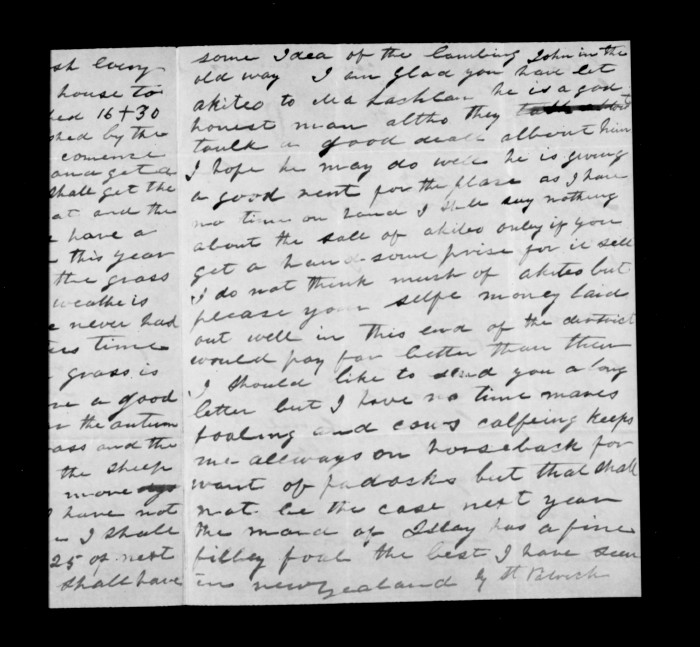 sh Every
house to
ed 16 + 30
shed by the
comence
and get a
shall get the
at and the
have a
this year
the grass
weathe is
never had
time
grass is
a good
the autum
ass and the
the sheep
move
I have not
I shall
25 of next
shall have
some Idea of the lambing John in the
old way I am glad you have let
akiteo to Ma Lachlan he is a good
honest man altho they
taulk a good deall albout him
I hope he may do well he is giving
a good rent for the plase as I have
no time on hand I shall say nothing
about the sall of akiteo onley if you
get a handsome prise for it sell
I do not think mush of akiteo but
please your selfe money laid
out well in this end of the district
would pay far better than then
I should like to send you a long
letter but I have no time mares
foaling and cows calfeing keeps
me allways on horseback for
want of padocks but that shall
not be the case next year
the maid of Islay has a fine
filley foal the best I have seen
in newzealand by